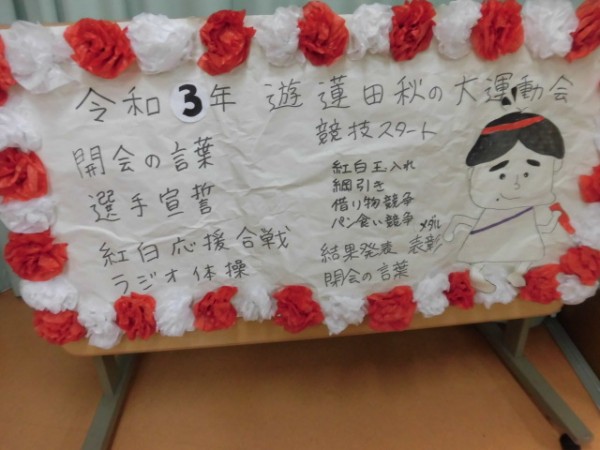 令和3年 遊蓮田秋の大運動会
開会の言葉
選手宣誓
紅白応援合戦
ラジオ体操
競技スタート
紅白玉入れ
綱引き
借り物競争
パン食い競争
結果発表 メダル表彰
閉会の言葉